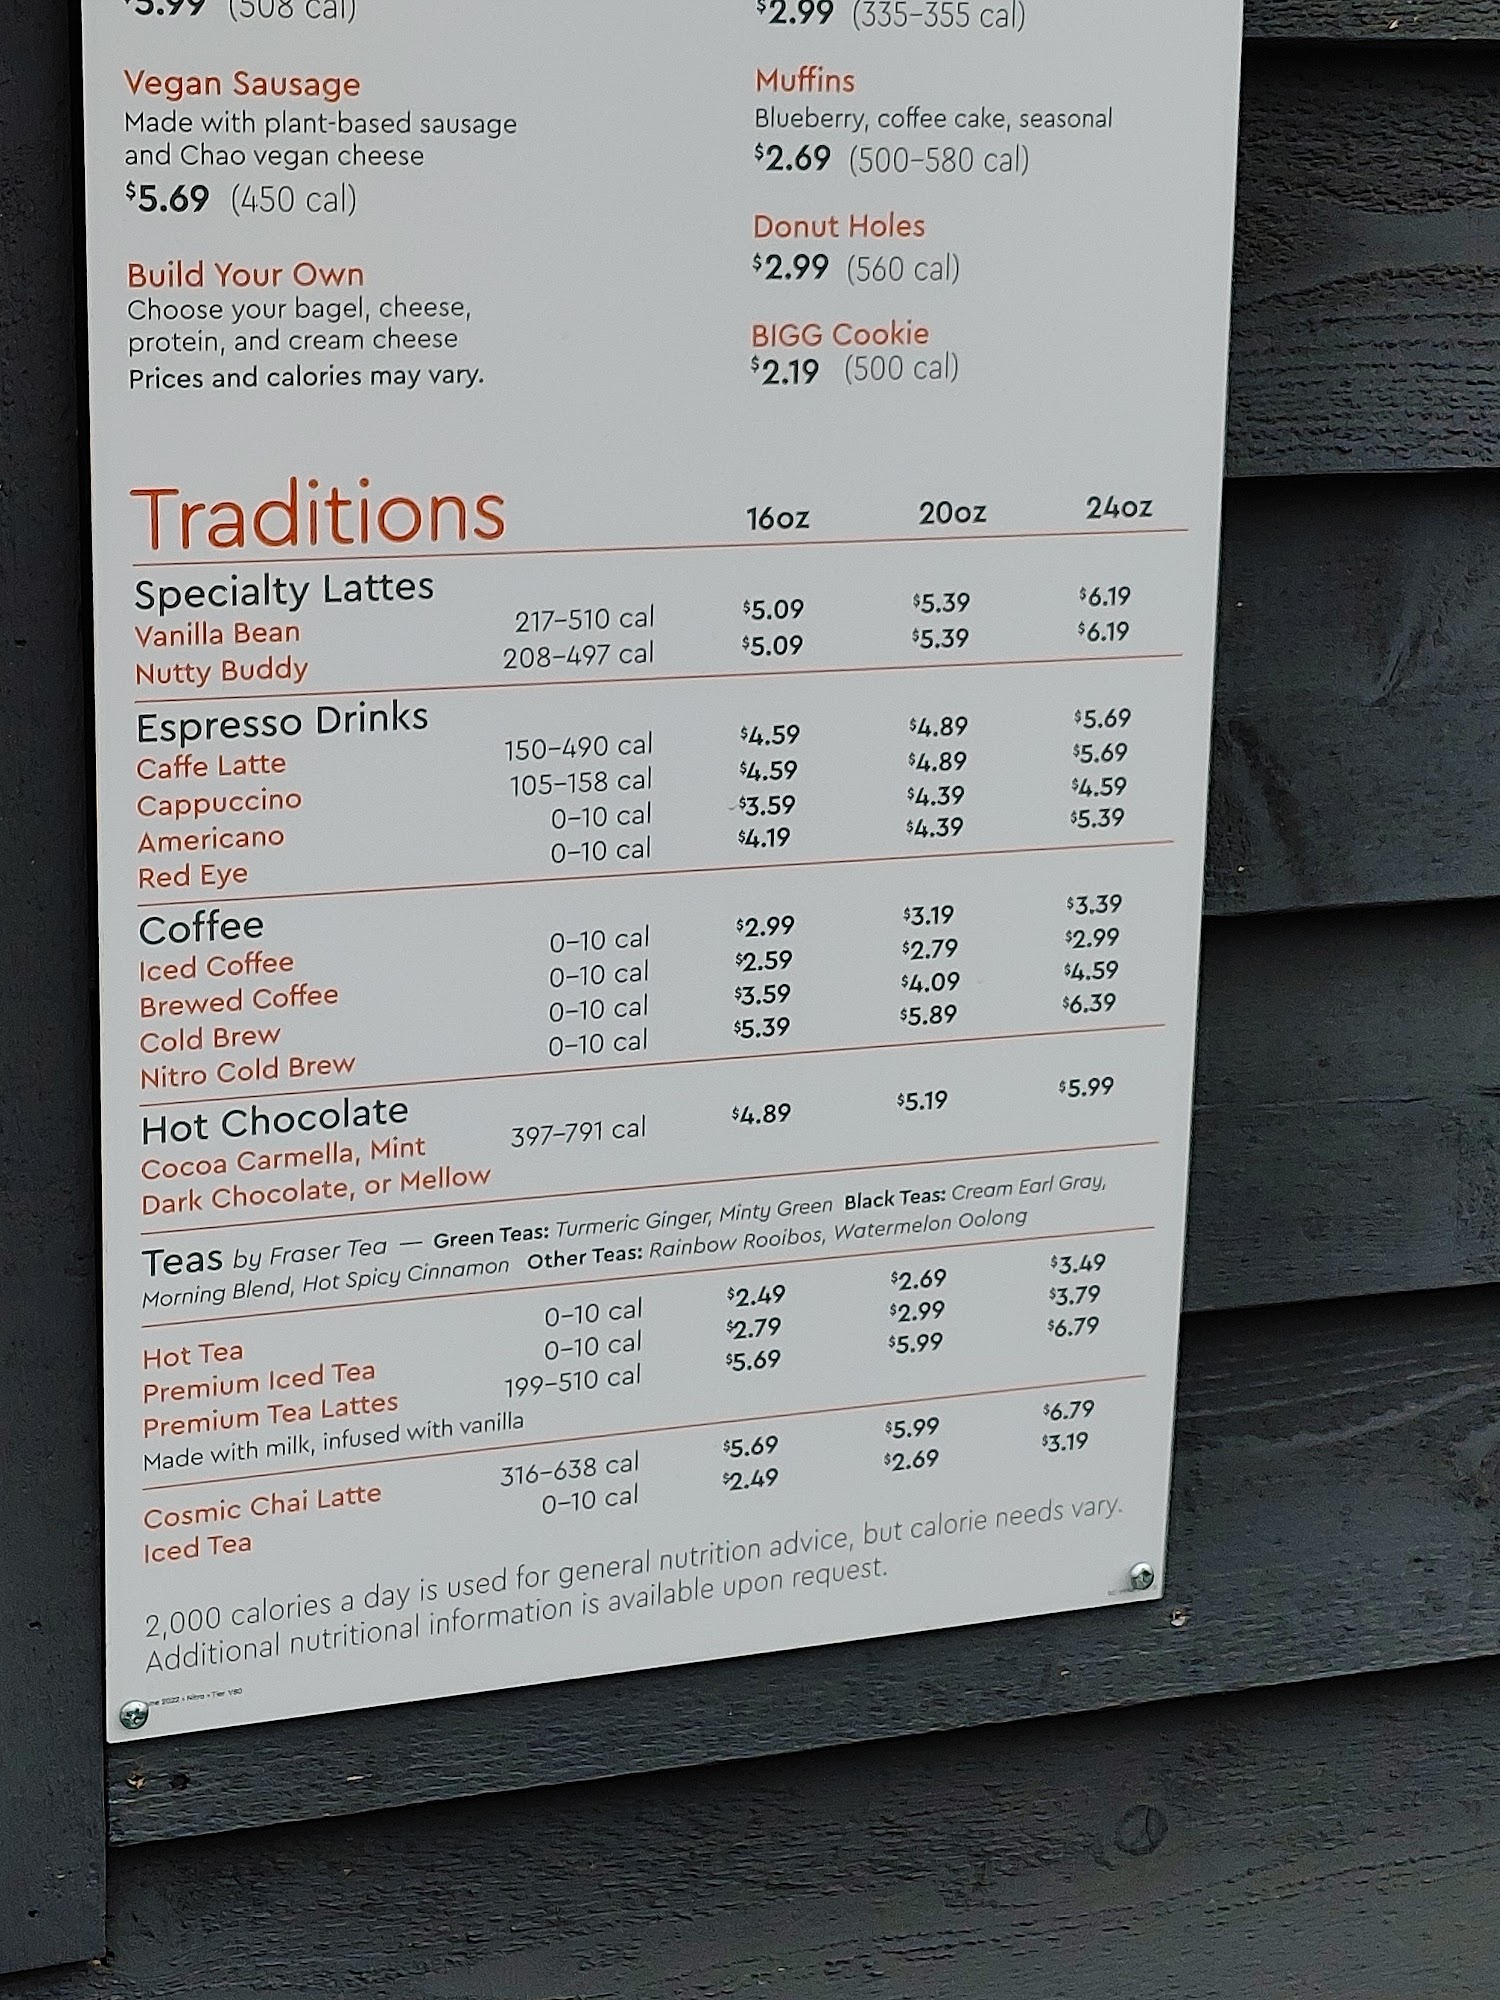 $5.99 (508 cal)
Vegan Sausage
Made with plant-based sausage
and Chao vegan cheese
$5.69 (450 cal)
Build Your Own
Choose your bagel, cheese,
protein, and cream cheese
Prices and calories may vary.
$2.99 (335-355 cal)
Muffins
Blueberry, coffee cake, seasonal
$2.69 (500-580 cal)
Donut Holes
$2.99 (560 cal)
BIGG Cookie
$2.19 (500 cal)
Traditions 16oz 20oz 24oz
Specialty Lattes
Vanilla Bean 217-510 cal $5.09 $5.39 $6.19
Nutty Buddy 208-497 cal $5.09 $5.39 $6.19
Espresso Drinks
Caffe Latte 150-490 cal $4.59 $4.89 $5.69
Cappuccino 105-158 cal $4.59 $4.89 $5.69
Americano 0-10 cal $3.59 $4.39 $4.59
Red Eye 0-10 cal $4.19 $4.39 $5.39
Coffee
Iced Coffee 0-10 cal $2.99 $3.19 $3.39
Brewed Coffee 0-10 cal $2.59 $2.79 $2.99
Cold Brew 0-10 cal $3.59 $4.09 $4.59
Nitro Cold Brew 0-10 cal $5.39 $5.89 $6.39
Hot Chocolate
Cocoa Carmella, Mint 397-791 cal $4.89 $5.19 $5.99
Dark Chocolate, or Mellow
Teas by Fraser Tea — Green Teas: Turmeric Ginger, Minty Green Black Teas: Cream Earl Gray,
Morning Blend, Hot Spicy Cinnamon Other Teas: Rainbow Rooibos, Watermelon Oolong
Hot Tea 0-10 cal $2.49 $2.69 $3.49
Premium Iced Tea 0-10 cal $2.79 $2.99 $3.79
Premium Tea Lattes 199-510 cal $5.69 $5.99 $6.79
Made with milk, infused with vanilla
Cosmic Chai Latte 316-638 cal $5.69 $5.99 $6.79
Iced Tea 0-10 cal $2.49 $2.69 $3.19
2,000 calories a day is used for general nutrition advice, but calorie needs vary.
Additional nutritional information is available upon request.
2022 • Nitro • Tier